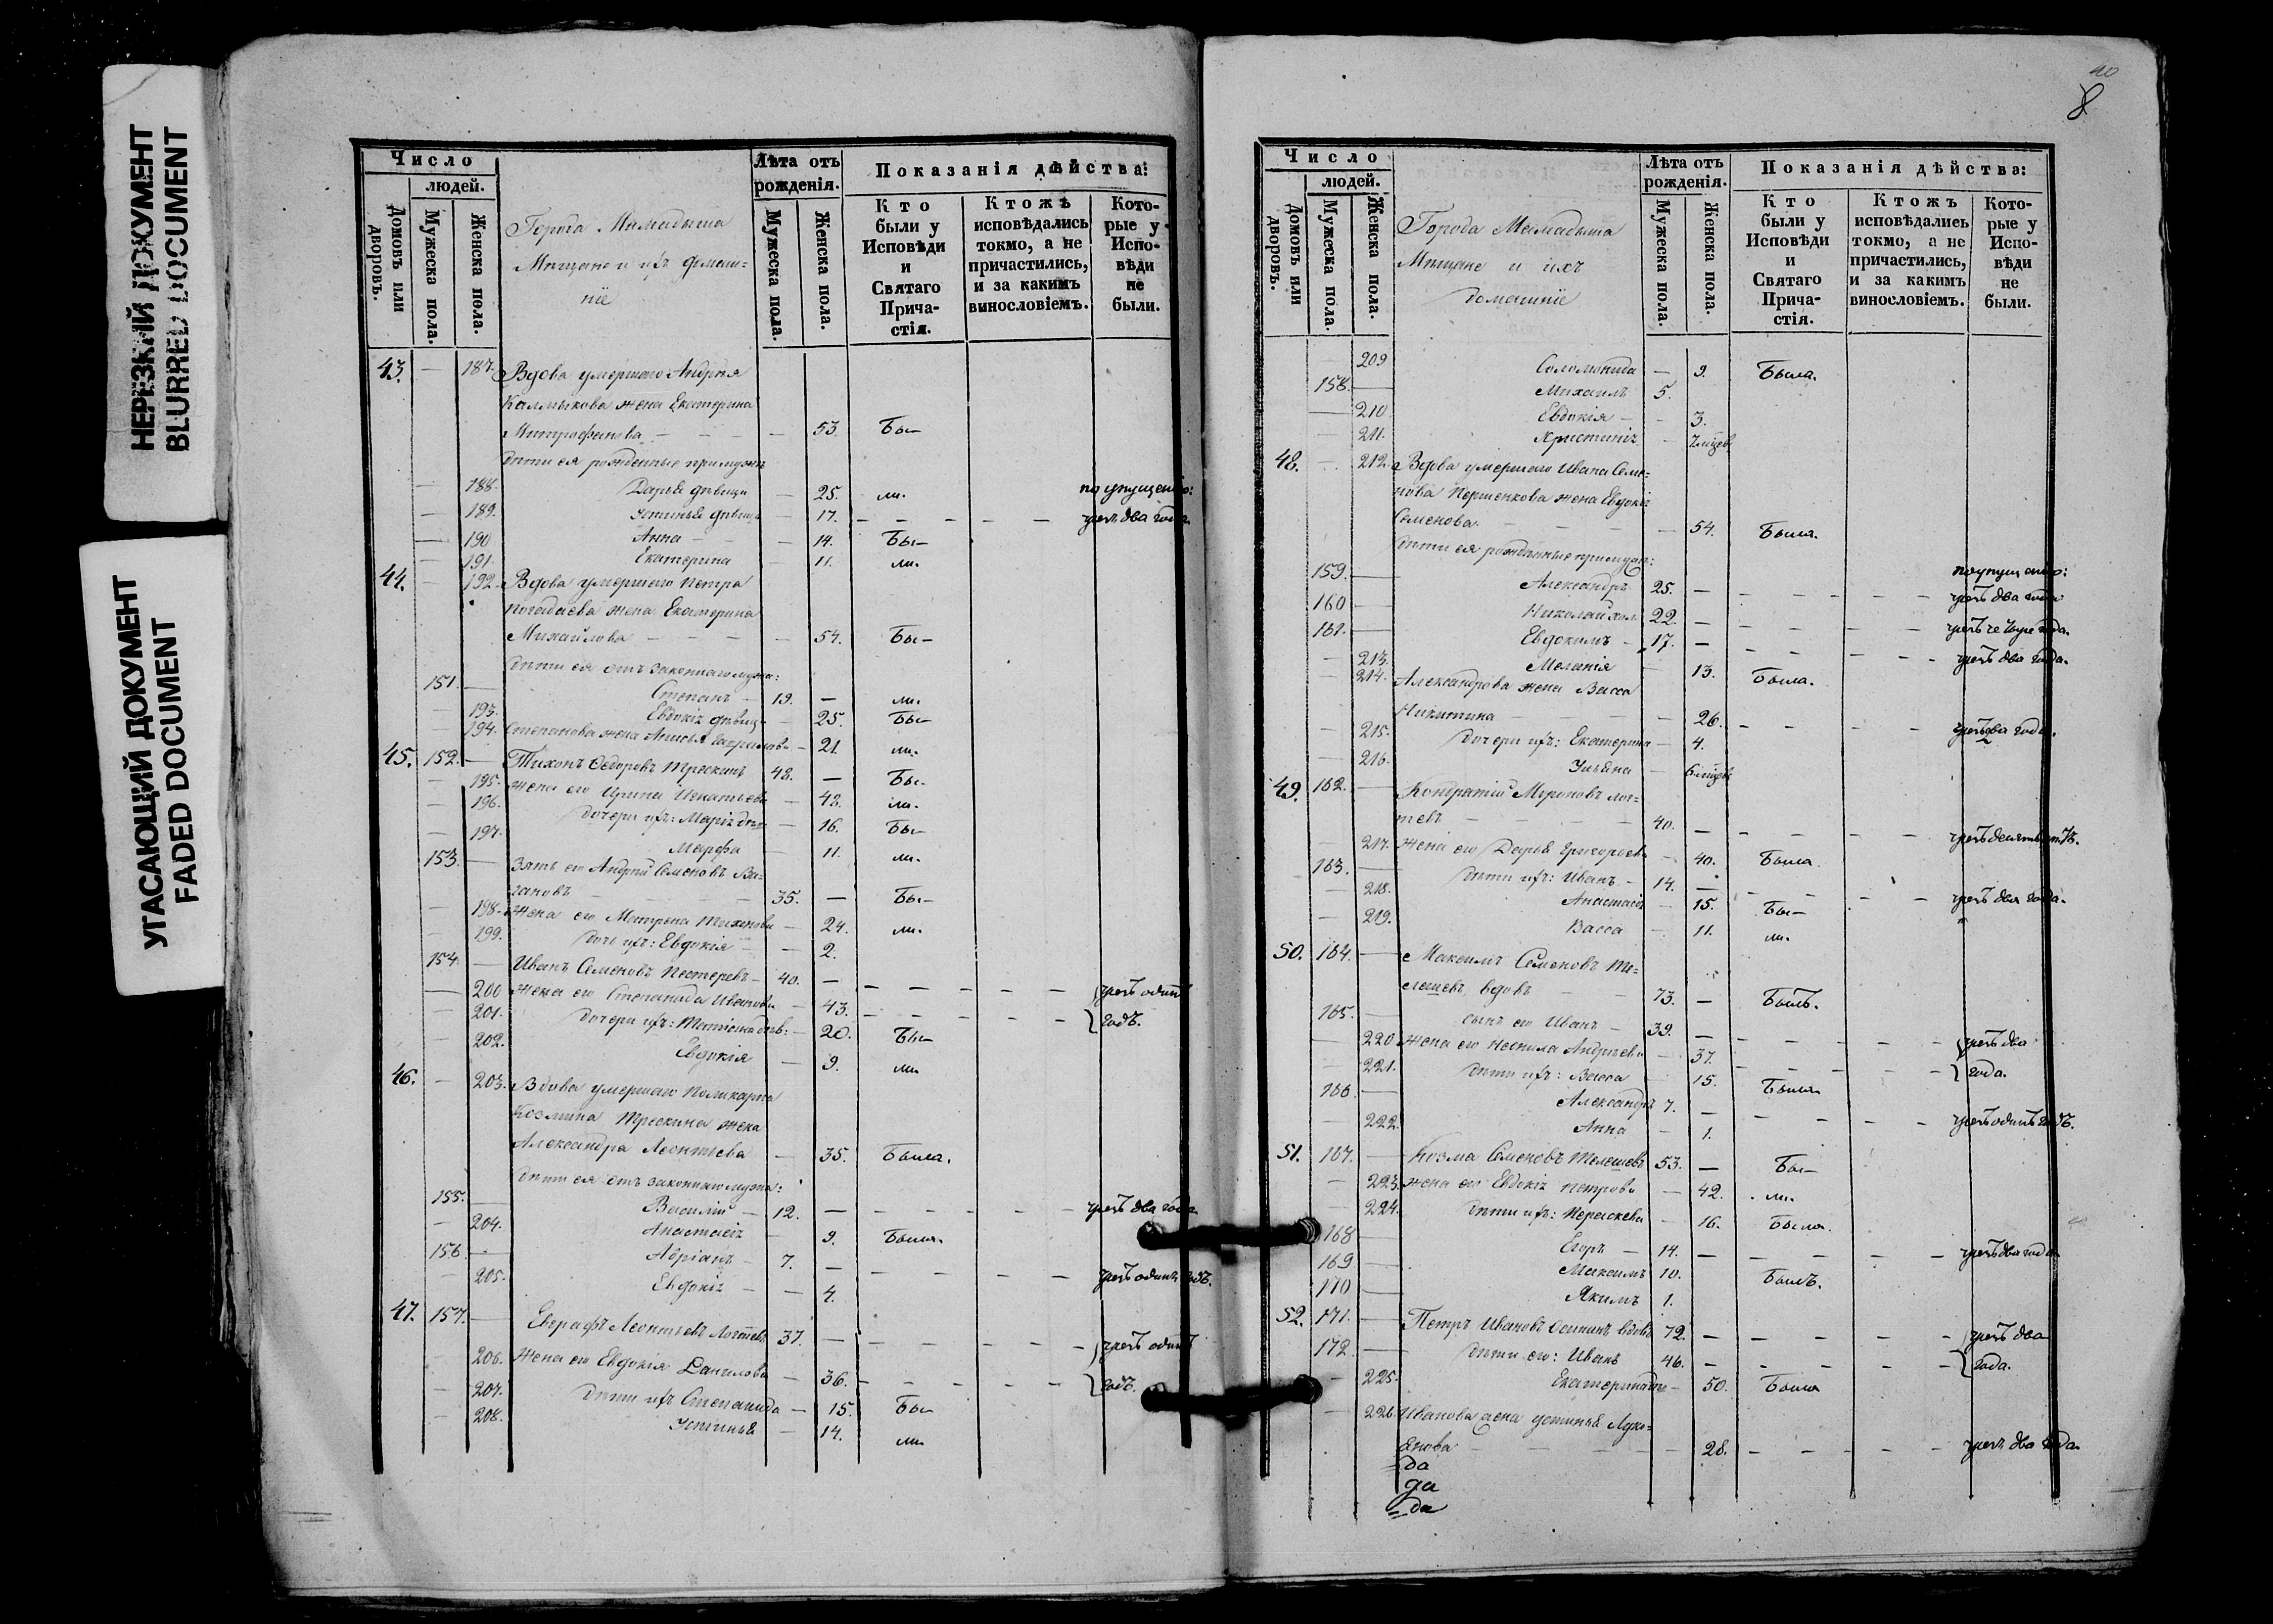 НЕРЕЗКИЙ ДОКУМЕНТ
BLURRED DOCUMENT
УГАСАЮЩИЙ ДОКУМЕНТ
FADED DOCUMENT
Число
людей.
Домовъ или дворовъ.
Мужеска пола.
Женска пола.
Города Мамадыша
Мещане и ихъ домаш=
ніе
Лѣта отъ рожденія.
Мужеска пола.
Женска пола.
Показанія дѣйства:
Кто были у Исповѣди и Святаго Прича-стія.
Ктожъ исповѣдались токмо, а не причастились, и за какимъ винословіемъ.
Кото-рые у Испо-вѣди не были.
43. — 187. Вдова умершаго Андрея
Калмыкова жена Екатерина
Митрофанова — — — — 53. Бы—
дѣти ея рожденные при мужѣ
— 188. Дарья дѣвица — 25. ли. по упущенію:
— 189. Устинья дѣвица — 17. — — — — — чрезъ два года.
— 190 Анна — — — 14. Бы—
— 191. Екатерина — 11. ли.
44. — 192. Вдова умершаго Петра
Погадаева жена Екатерина
Михайлова — — — — 54. Бы—
дѣти ея отъ законнаго мужа:
151. — Степанъ — 19. — ли.
— 193. Евдокія дѣвица — 25. Бы—
— 194. Степанова жена Анисья Гаврилова — 21. ли.
45. 152. — Тихонъ Ѳедоровъ Трескинъ 48. — Бы—
— 195. жена его Ирина Игнатьева — 48. ли.
— 196. дочери ихъ: Марія дѣв — 16. Бы—
— 197. Марѳа — 11. ли.
153. — Зять его Андрей Семеновъ Ва=
гановъ — — 35. — Бы—
— 198. жена его Матрена Тихонова — 24. ли.
— 199. дочь ихъ: Евдокія — — 2.
154. — Иванъ Семеновъ Пестеревъ — 40. — — — — — —
— 200 жена его Степанида Иванова — 43. — — — — — чрезъ одинъ
годъ.
— 201. дочери ихъ: дѣв: — 20. Бы—
— 202. Евдокія — 9. ли
46. — 203. Вдова умершаго Поликарпа
Козмина Трескина жена
Александра Леонтьева — 35. Была.
дѣти ея отъ законнаго мужа:
155. — Василій — 12. — — — — — — чрезъ два года
— 204. Анастасія — 9. Была.
156. — Адріанъ — 7. — — — — — —
— 205. Евдокія — — 4. чрезъ одинъ годъ.
47. 157. — Евграфъ Леонтьевъ Логтевъ 37. — — — — — — чрезъ одинъ
годъ.
— 206. жена его Евдокія Данилова — 36. — — — — —
— 207. дѣти ихъ Степанида — 15. Бы—
— 208. Устинья — 14. ли
40
8
Число
людей.
Домовъ или дворовъ.
Мужеска пола.
Женска пола.
Города Мамадыша
Мещане и ихъ
домашніе
Лѣта отъ рожденія.
Мужеска пола.
Женска пола.
Показанія дѣйства:
Кто были у Исповѣди и Святаго Прича-стія.
Ктожъ исповѣдались токмо, а не причастились, и за какимъ винословіемъ.
Кото-рые у Испо-вѣди не были.
— 209 Соломонида — 9. Была.
158. — Михаилъ 5.
— 210 Евдокія — 3.
— 211. Христинія —
48. — 212. Вдова умершаго Ивана Семе=
нова жена Евдокія
Семенова — — — — 54. Была.
дѣти ея рожденные при мужѣ:
159. — Александръ 25. — — — — — — по упущенію:
чрезъ два года.
160 — Николай хол. 22. — — — — — чрезъ четыре года.
161. — Евдокимъ — 17. — — — — — — чрезъ два года.
— 213. Меланія — 13. Была.
— 214. Александрова жена Васса
Никитина — — — 26. — — — — — чрезъ два года.
— 215. дочери ихъ: Екатерина — 4.
— 216. Ульяна —
49. 162. — Кондратій Мироновъ Лог=
тевъ — — — — 40. — — — — — — чрезъ лѣтъ.
— 217. жена его Дарья Григорьева — 40. Была
163. — дѣти ихъ: Иванъ — 14. — — — — — — чрезъ два года.
— 218. Анастасія — 15. Бы—
— 219. Васса — 11. ли.
50. 164. — Максимъ Семеновъ Те=
лешевъ вдовъ — — 73. — Былъ.
165. — сынъ его Иванъ — 39. — — — — — — чрезъ два
года.
— 220 жена его Неонила Андреева — 37. — — — — —
— 221. дѣти ихъ: Васса — 15. Была
166 — Александръ 7. — — — — — — чрезъ одинъ годъ.
— 222. Анна — 1.
51. 167. — Козма Семеновъ Телешевъ 53. — Бы—
— 223. жена его Евдокія Петрова — 42. ли.
— 224. дѣти ихъ: Параскева — 16. Была.
168 — Егоръ — 14. — — — — — — чрезъ два года
169 — Максимъ 10. Былъ.
170 — Якимъ 1.
52. 171. — Петръ Ивановъ Осипинъ вдовъ 72. — — — — — — чрезъ два
года.
172. — дѣти его: Иванъ 46. — — — — —
— 225. Екатерина дѣв — 50. Была
— 226 Иванова жена Устинья Лукі=
янова — — — — 28. — — — — — чрезъ два года.
да
да
да